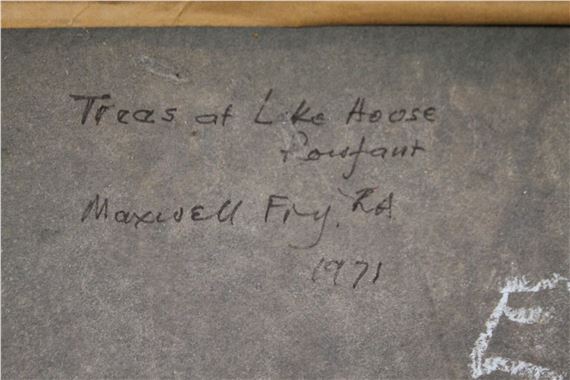 Treas at Like House
Ponfant
Maxwell Fry, RA
1971
E